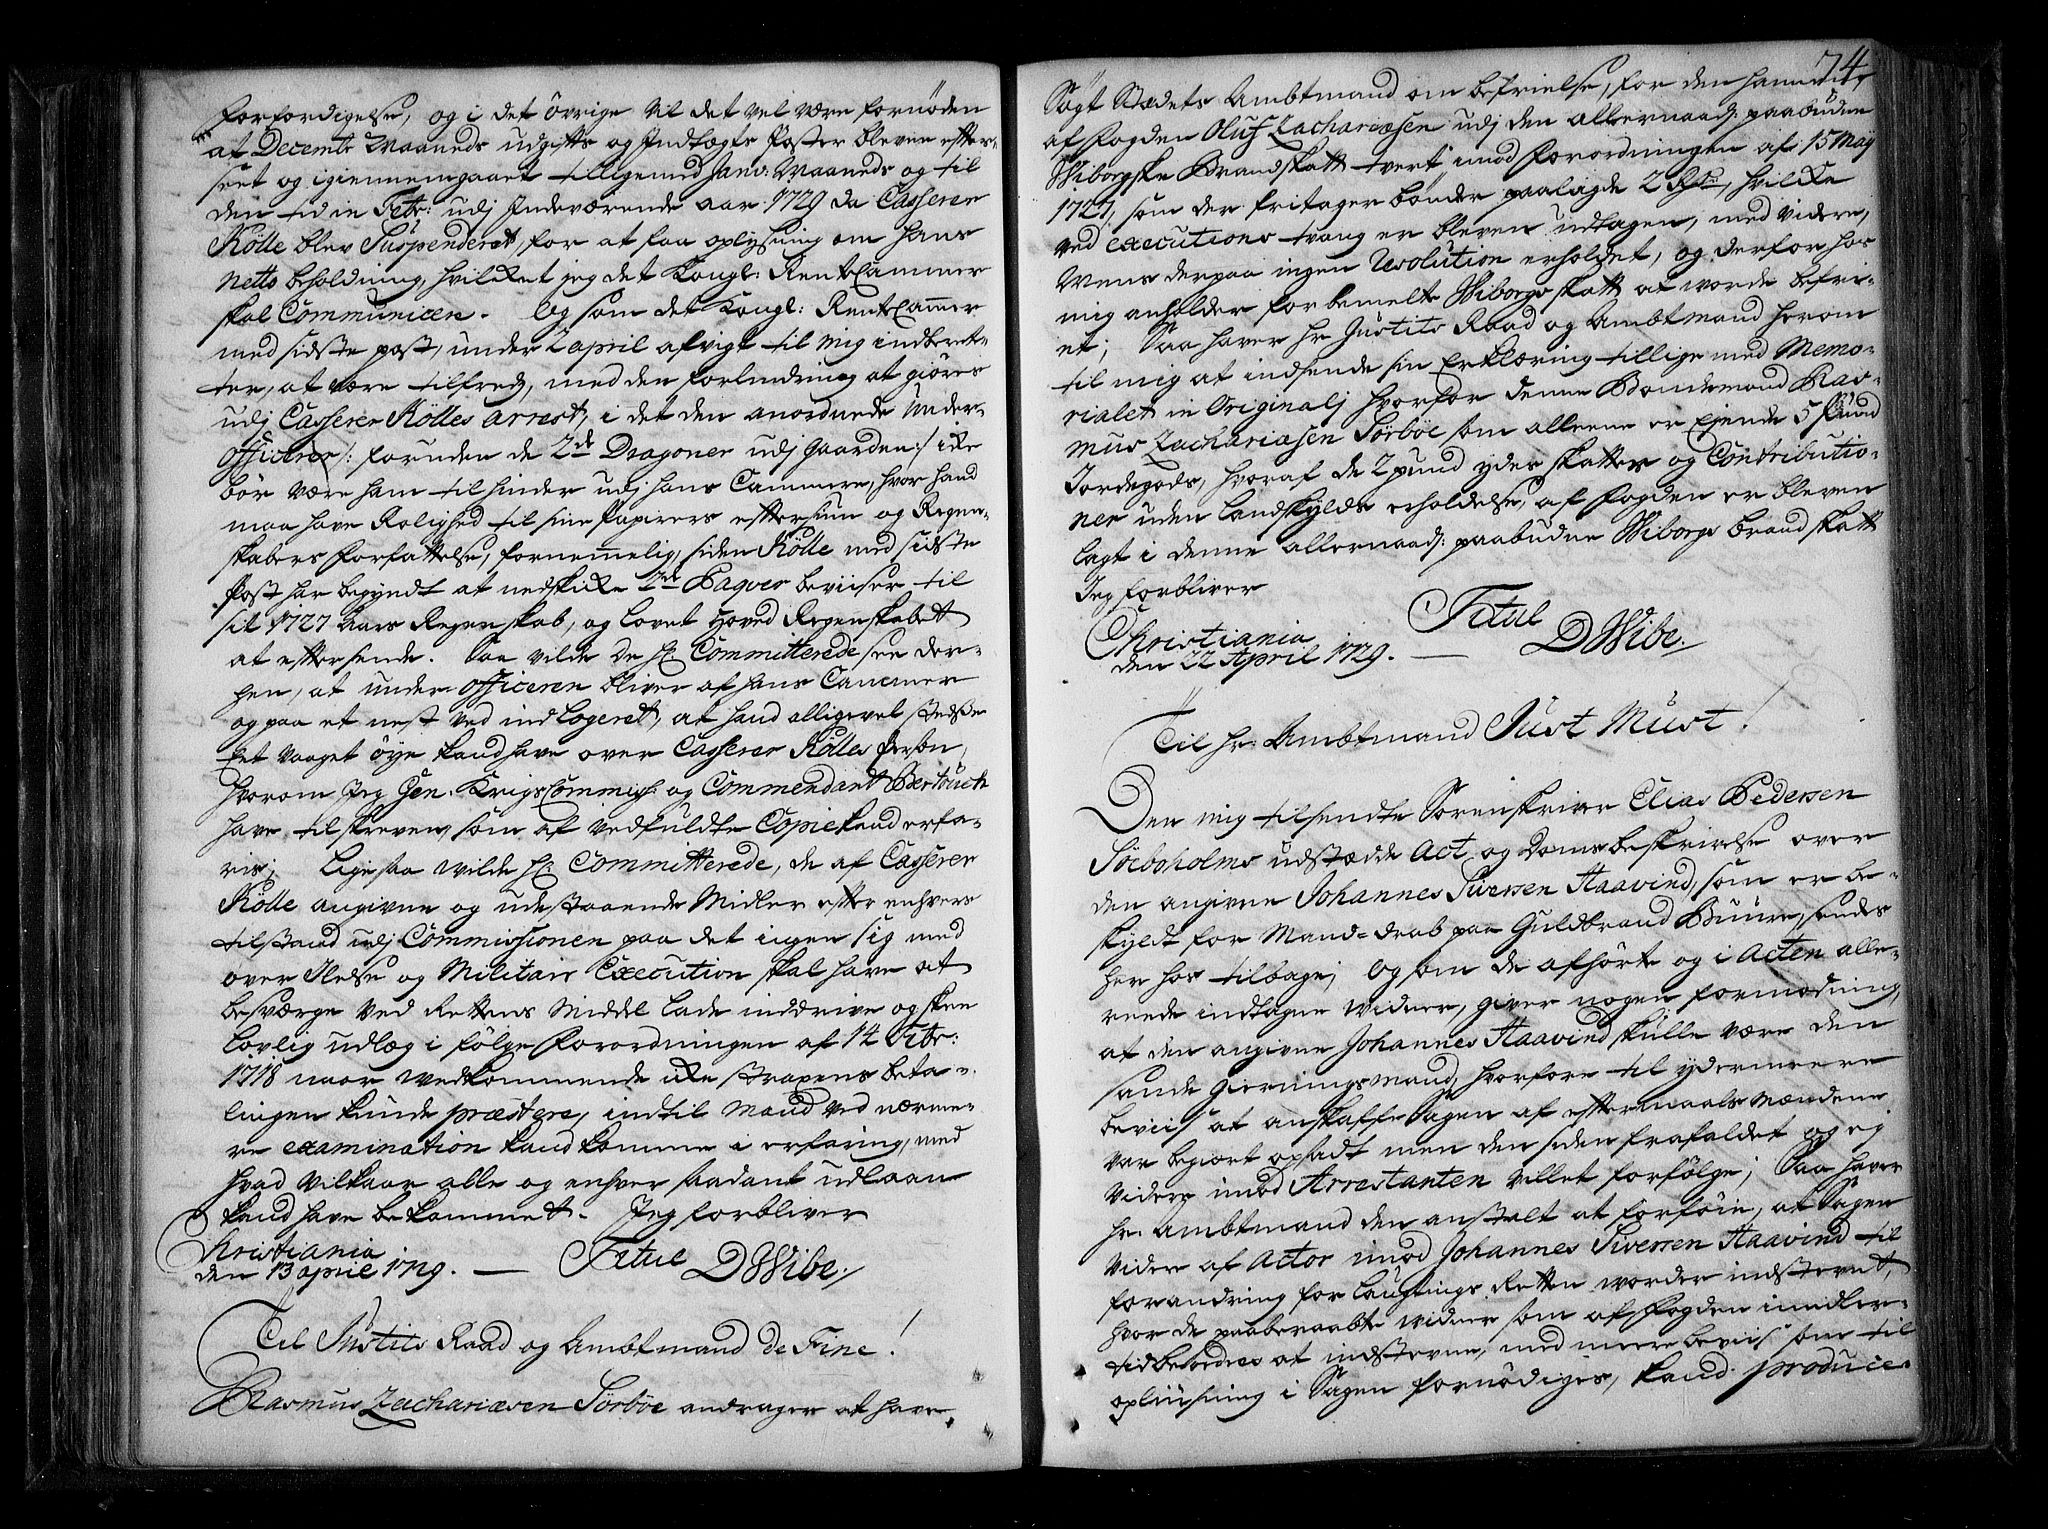 forfordigelse, og i det övrige vil det vel være fornöden
at Decembr Maaneds udgifts og Indtægts Poster bleven effter-
seet og igiennemgaaet tilligemed Janv: Maaneds og til
den tid in Febr: udj Indeværende aar 1729 da Casserer
Kölle blev Suspenderet, for at faa oplysning om hans
netto beholdning, hvilket jeg det Kongl: RenteCammer
skal Communicere. Og som det Kongl: RenteCammer
med sidste post, under 2 april afvigt til mig indberet-
ter, at være tilfredz, med den forlindring at giöres
udj Casserer Kölles arrest, i det den anordnede Under-
officerer /: foruden de 2de Dragoner udj gaarden :/ ike
bör være ham til hinder udj hans Cammere, hvor hand
maa have Rolighed til sine Papirers efftersiun og Regen-
skabers forfattelse, fornemmelig, siden Kölle med sidste
Post har begyndt at nedskicke 2de Paqver beviiser til
sit 1727 Aars Regenskab, og lovet Hoved Regenskabet
at efftersende. Saa vilde de Hr: Committerede see der-
hen, at under officeren bliver af hans Cammer
og paa et nest ved indlogeret, at hand alligevel stedse
Eet vaaget öye kand have over Casserer Kölles Person,
hvorom Jeg Gen: KrigsCommiss: og Commendant Bertouch
have tilskreven, som af vedfuldte Copie kand erfa-
ris; Ligesaa wilde Hr: Committerede, de af Casserer
Kölle angivne og udestaaende Midler effter enhvers
tilstand udj Commissionen paa det ingen sig med
over Ilelse og Militair Execution skal have at
besværge ved Rettens Middel lade inddrive og skee
lovlig udlæg i fölge Forordningen af 14 Febr:
1718 naar wedkommende ike straxens beta-
lingen kunde præstere, indtil mand ved nærme-
re examination kand komme i erfaring, med
hvad vilkaar alle og enhver saadant udlaan
kand have bekommet. Jeg forbliver
Christiania
den 13 april 1729. — Tetul DWibe.
Til Justits Raad og Ambtmand de Fine!
Rasmus Zachariæsen Sörböe andrager at have
74
Sögt Stædets Ambtmand om befrielse, for den ham
af Fogden Oluf Zachariæsen udj den allernaad: paabudne
Wiborgske Brandskatt tvert imod Forordningen af 15 Maij
1727, som der fritager bönder paalagde 2 Rdr, hvilke
ved executions tvang er bleven udtagen, med videre,
Mens derpaa ingen Resolution erholdet, og derfor hos
mig anholder for bemelte Wiborgs skatt at worde befri-
et; Saa haver Hr Justits Raad og Ambtmand herom
til mig at indsende sin Erklæring tillige med Memo-
rialet in Originalj hvorfor denne Bondemand Ras-
mus Zachariæsen Sörböe som alleene er Ejende 5 Pund
Jordegods, hvoraf de 2 pund yder skatter og Contributio-
ner uden Landskylds erholdelse, af Fogden er bleven
lagt i denne allernaad: paabudne Wiborgs brand skatt
Jeg forbliver
Christiania
den 22 April 1729. — Tetul DWibe.
Til Hr: Ambtmand Just Must!
Den mig tilsendte Sorenskriver Elias Pedersen
Söeboholms udstædde Act, og Doms beskrivelse over
den angivne Johannes Siversen Haavind, som er be-
skyldt for Mand=drab paa Guldbrand Buure, sendes
her hos tilbage; Og som de afhörte og i Acten alle-
reede indtagne widner, giver nogen formodning,
at den angivne Johannes Haavind skulle være den
sande gierningsmand, hvorfore til ydermeere
beviis at anskaffe Sagen af effermaals Mændene
var begiert opsadt men den siden frafaldet og ej
videre imod Arrestanten villet forfölge; Saa haver
Hr: Ambtmand den anstalt at forföie, at Sagen
videre af Actor imod Johannes Siversen Haavind til
forandring for Laugtings Retten worder indstevnet,
hvor de paaberaabte widner som af Fogden imidler-
tid beordres at indstevne, med meere beviis som til
opliusning i Sagen fornödiges, kand produce-